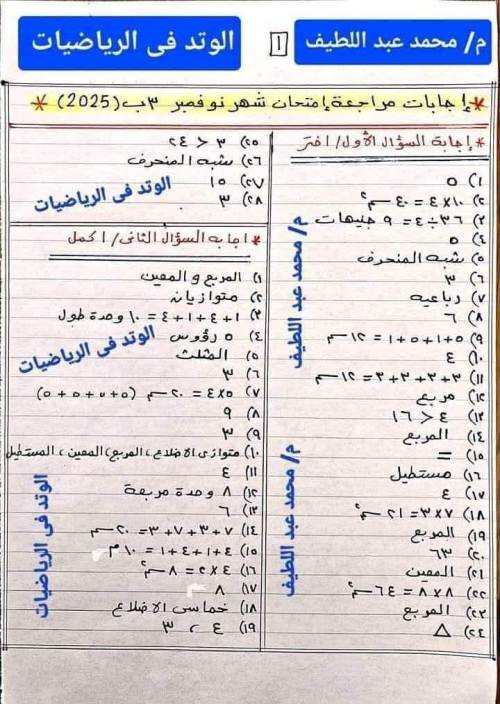 م/ محمد عبد اللطيف
١
الوتد فى الرياضيات
* إجابات مراجعة إمتحان شهر نوفمبر ٣ب (2025) *
* إجابة السؤال الأول/ اختر
١) ٥
٢) ١٠ × ٤ = ٤٠ سم٢
٣) ٣٦ ÷ ٤ = ٩ جنيهات
٤) ٥
٥) شبه المنحرف
٦) ٣
٧) رباعيه
٨) ٦
٩) ٥+١+٥+١ = ١٢ سم
١٠) ٤
١١) ٣+٣+٣+٣ = ١٢ سم
١٢) مربع
١٣) ٤ > ١٦
١٤) المربع
١٥) =
١٦) مستطيل
١٧) ٤
١٨) ٧ × ٣ = ٢١ سم٢
١٩) المربع
٢٠) ٦٣
٢١) المعين
٢٢) ٨ × ٨ = ٦٤ سم٢
٢٣) المربع
٢٤) △
٢٥) ٣ < ٢٤
٢٦) شبه المنحرف
٢٧) ١٥
٢٨) ٣
الوتد فى الرياضيات
* اجابه السؤال الثانى/ اكمل
١) المربع و المعين
٢) متوازيان
٣) ١+٤+١+٤ = ١٠ وحدة طول
٤) ٥ رؤوس
الوتد فى الرياضيات
٥) المثلث
٦) ٣
٧) ٥×٤ = ٢٠ سم (٥+٥+٥+٥)
٨) ٩
٩) ٣
١٠) متوازى الاضلاع، المربع، المعين، المستطيل
١١) ٤
١٢) ٨ وحدة مربعة
١٣) ٦
١٤) ٧+٣+٧+٣ = ٢٠ سم
١٥) ٤+١+٤+١ = ١٠ م
١٦) ٤×٢ = ٨ سم٢
١٧) ٨
١٨) خماسى الاضلاع
١٩) ٤ ، ٣
م/ محمد عبد اللطيف
م/ محمد عبد اللطيف
الوتد فى الرياضيات